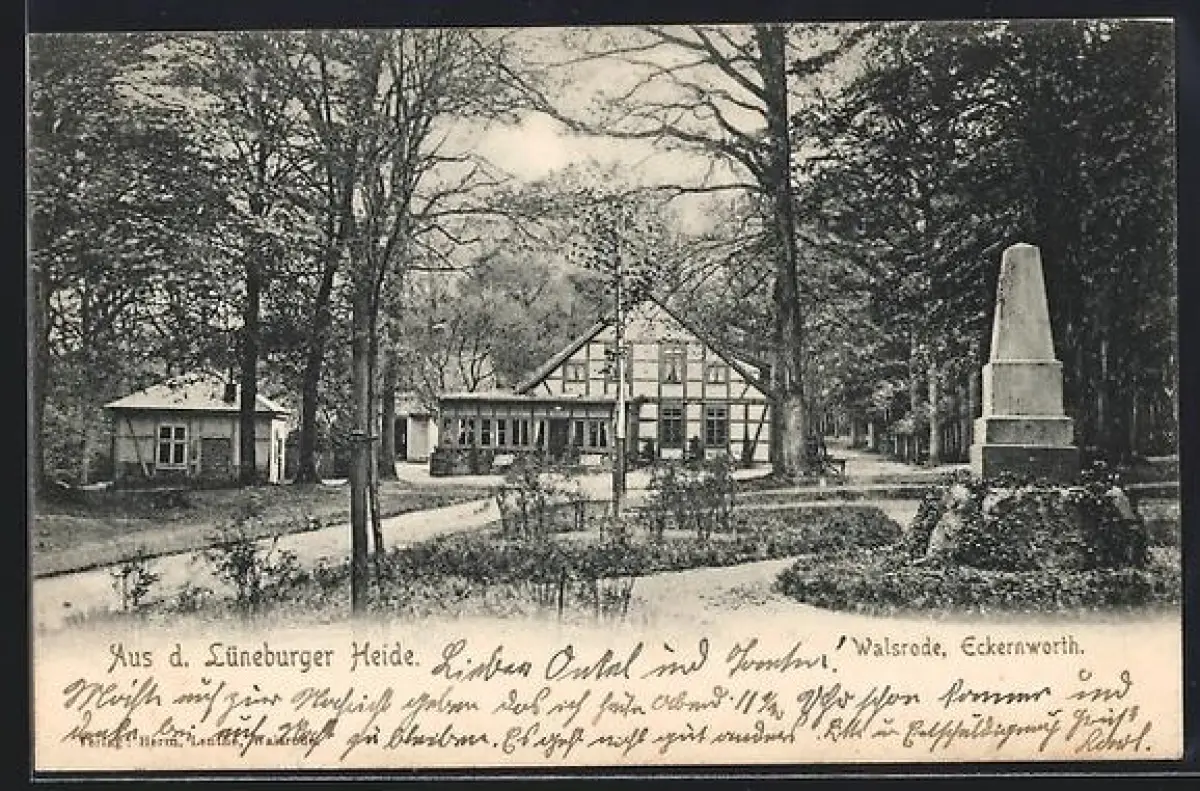 Aus d. Lüneburger Heide. Lieber Onkel und Tante! Walsrode, Eckernworth.
Möchte auch zur Nachricht geben das ich heute Abend 11 1/2 Uhr schon komme und
denke bei auch Nacht zu bleiben. Es geht nicht gut anders. Bitte u Entschuldigung Gruß
Verlag: Herm. Lentke, Walsrode.